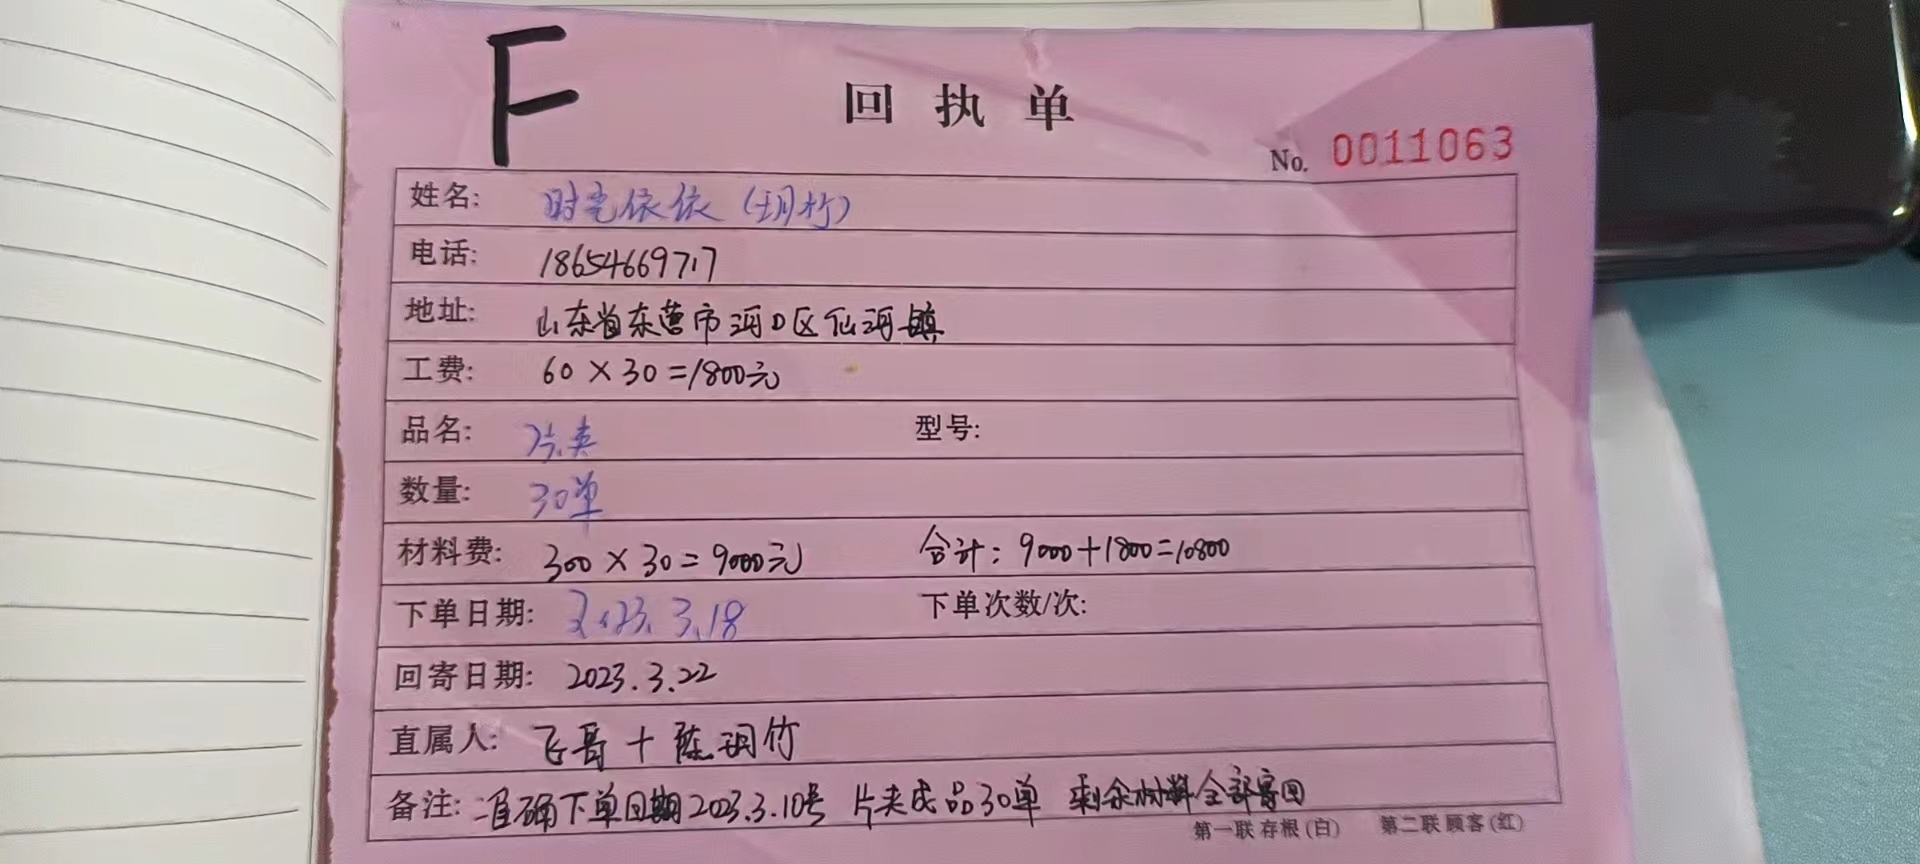 F
回执单
No. 0011063
姓名: 时光依依（玥竹）
电话: 18654669717
地址: 山东省东营市河口区仙河镇
工费: 60×30=1800元
品名: 片夹 型号:
数量: 30单
材料费: 300×30=9000元 合计: 9000+1800=10800
下单日期: 2023.3.18 下单次数/次:
回寄日期: 2023.3.22
直属人: 飞哥+陈玥竹
备注: 准确下单日期2023.3.10号 片夹成品30单 剩余材料全部寄回
第一联 存根(白) 第二联 顾客(红)